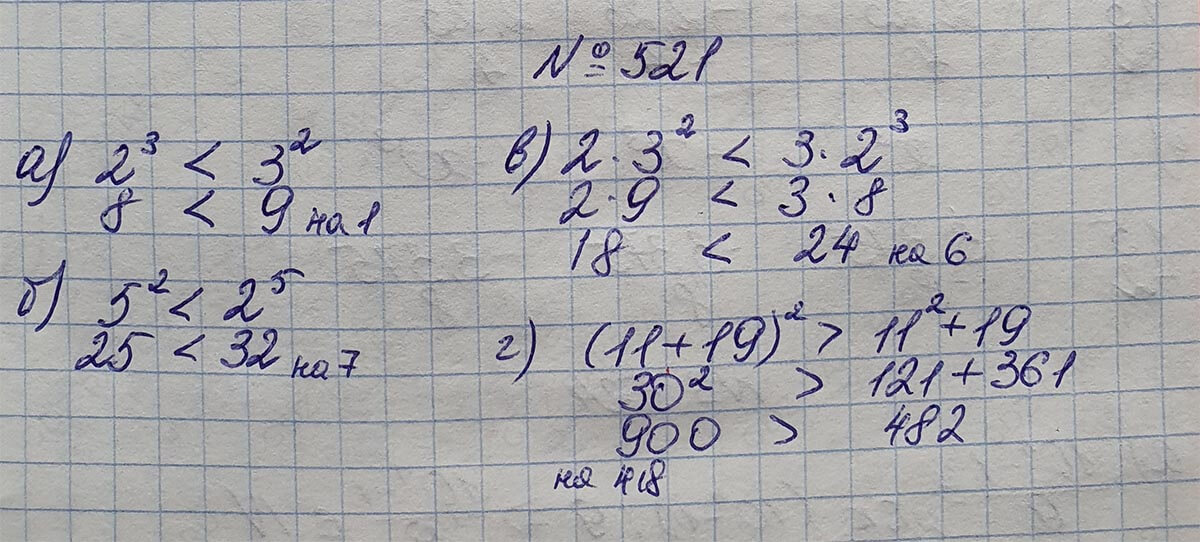 № 521
а) 2³ < 3²
8 < 9 на 1
б) 5² < 2⁵
25 < 32 на 7
в) 2 · 3² < 3 · 2³
2 · 9 < 3 · 8
18 < 24 на 6
г) (11 + 19)² > 11² + 19
30² > 121 + 361
900 > 482
на 418